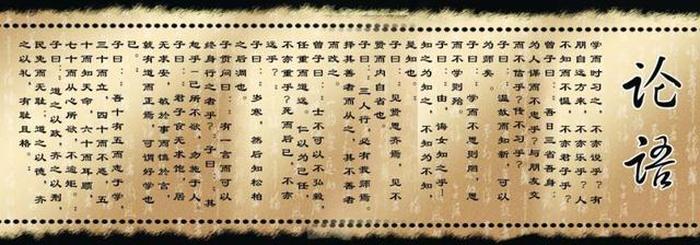 论语
学而时习之，不亦说乎？有
朋自远方来，不亦乐乎？人
不知而不愠，不亦君子乎？
曾子曰：吾日三省吾身：
为人谋而不忠乎？与朋友交
而不信乎？传不习乎？
子曰：温故而知新，可以
为师矣。
子曰：学而不思则罔，思
而不学则殆。
子曰：由，诲女知之乎！
知之为知之，不知为不知，
是知也。
子曰：见贤思齐焉，见不
贤而内自省也。
子曰：三人行，必有我师焉。
择其善者而从之，其不善者
而改之。
曾子曰：士不可以不弘毅，
任重而道远。仁以为己任，
不亦重乎？死而后已，不亦
远乎？
子曰：岁寒，然后知松柏
之后凋也。
子贡问曰：有一言而可以
终身行之者乎？子曰：其
恕乎！己所不欲，勿施于人。
子曰：君子食无求饱，居
无求安，敏于事而慎于言，
就有道而正焉，可谓好学也
已。
子曰：吾十有五而志于学，
三十而立，四十而不惑，五
十而知天命，六十而耳顺，
七十而从心所欲，不逾矩。
子曰：道之以政，齐之以刑，
民免而无耻；道之以德，齐
之以礼，有耻且格。